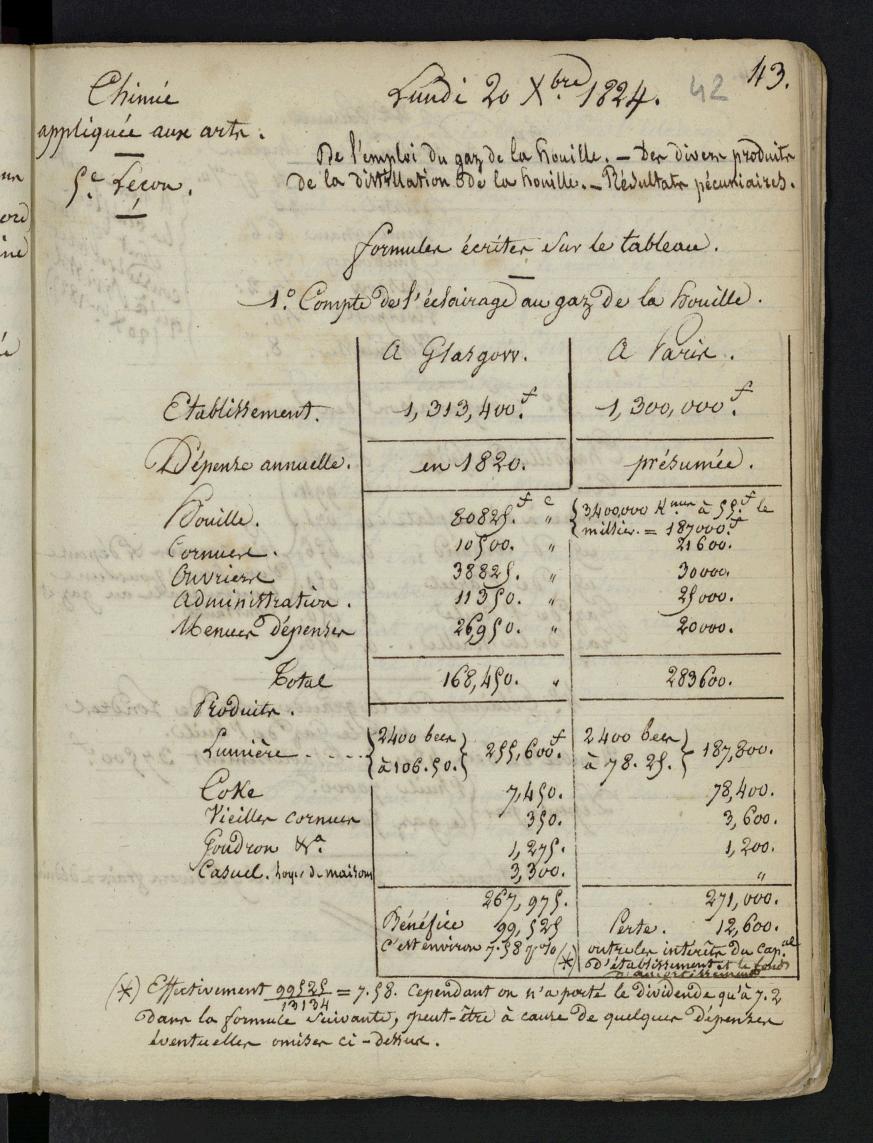 43.
42
Chimie
appliquée aux arts.
5.e Leçon.
Lundi 20 Xbre 1824.
De l'emploi du gaz de la houille. — Des divers produits
de la distillation de la houille. — Résultats pécuniaires.
formules écrites sur le tableau.
1.o Compte de l'éclairage au gaz de la houille.
A Glasgow. A Paris.
Etablissement. 1,313,400.f 1,300,000.f
Dépense annuelle. en 1820. présumée.
Houille. 80825.f "c {3400,000 K à 55.f le
millier. = 187000.f
Cornues. 10500. " 21600.
Ouvriers 38825. " 30000.
Administration. 11350. " 25000.
Menues dépenses 26,950. " 20000.
Total 168,450. " 283600.
Produits.
Lumière . . . . {2400 becs à 106.50.} 255,600.f 2400 becs à 78.25.} 187,800.
Coke 7,450. 78,400.
Vieilles cornues 350. 3,600.
Goudron &.a 1,275. 1,200.
Casuel. loyer de maisons 3,300. "
267,975. 271,000.
Bénéfice 99,525 Perte. 12,600.
C'est environ 7.58 p% (*) outre les intérêts du cap.al
d'établissement et le fonds
d'amortissement
(*) Effectivement 99525/13134 = 7.58. Cependant on n'a porté le dividende qu'à 7.2
dans la formule suivante, peut-être à cause de quelques dépenses
éventuelles omises ci-dessus.